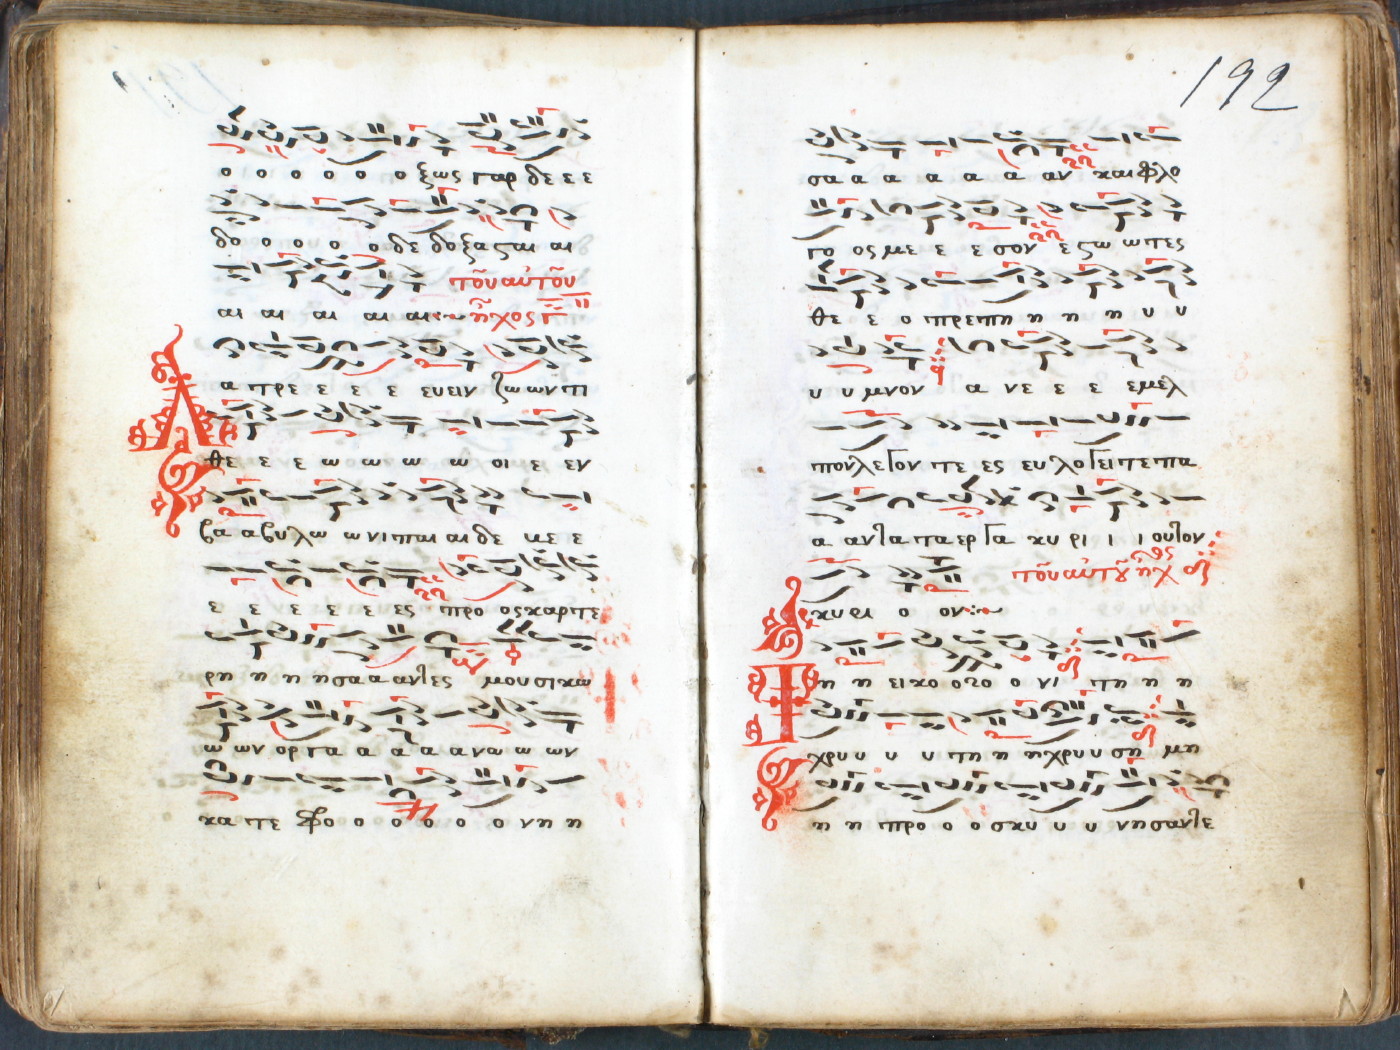 ο ο ο ο ο ο ξως γαρ δε ε ε
δο ο ο ο ο δε δοξα ςαι αι
τοῦ αὐτοῦ
αι αι αι αι αι ἦχος
α πρε ε ε ε ευειν ζω ων π
θε ε ε ω ω ω ω οι ε εν
βα αβυλω ω νι παι αι δε με ε
ε ε ε ε ε ες προ οσκαρτε
ρη η η η σα α αντες μουσικω
ω ων οργα α α α α να ω ων
κα τε φο ο ο ο ο ο ο νη η
192
σα α α α α α αν και φλο
γο ος με ε ε ε σον ε ςω ωτες
θε ε ο πρεπη η η η υ υ
υ υ μνον α νε ε ε εμελ
πον λεγον τε ες ευλογειτε πα
α αντα τα εργα κυ ρι ι ι ουτον
τοῦ αὐτοῦ ἦχ
κυρι ο ον
τη η εικο ο νο ο νι τη η η
χρυ υ υ υ τη η η χρυ υ ση μη
η η προ ο ο σκυ υ υ νησαντε